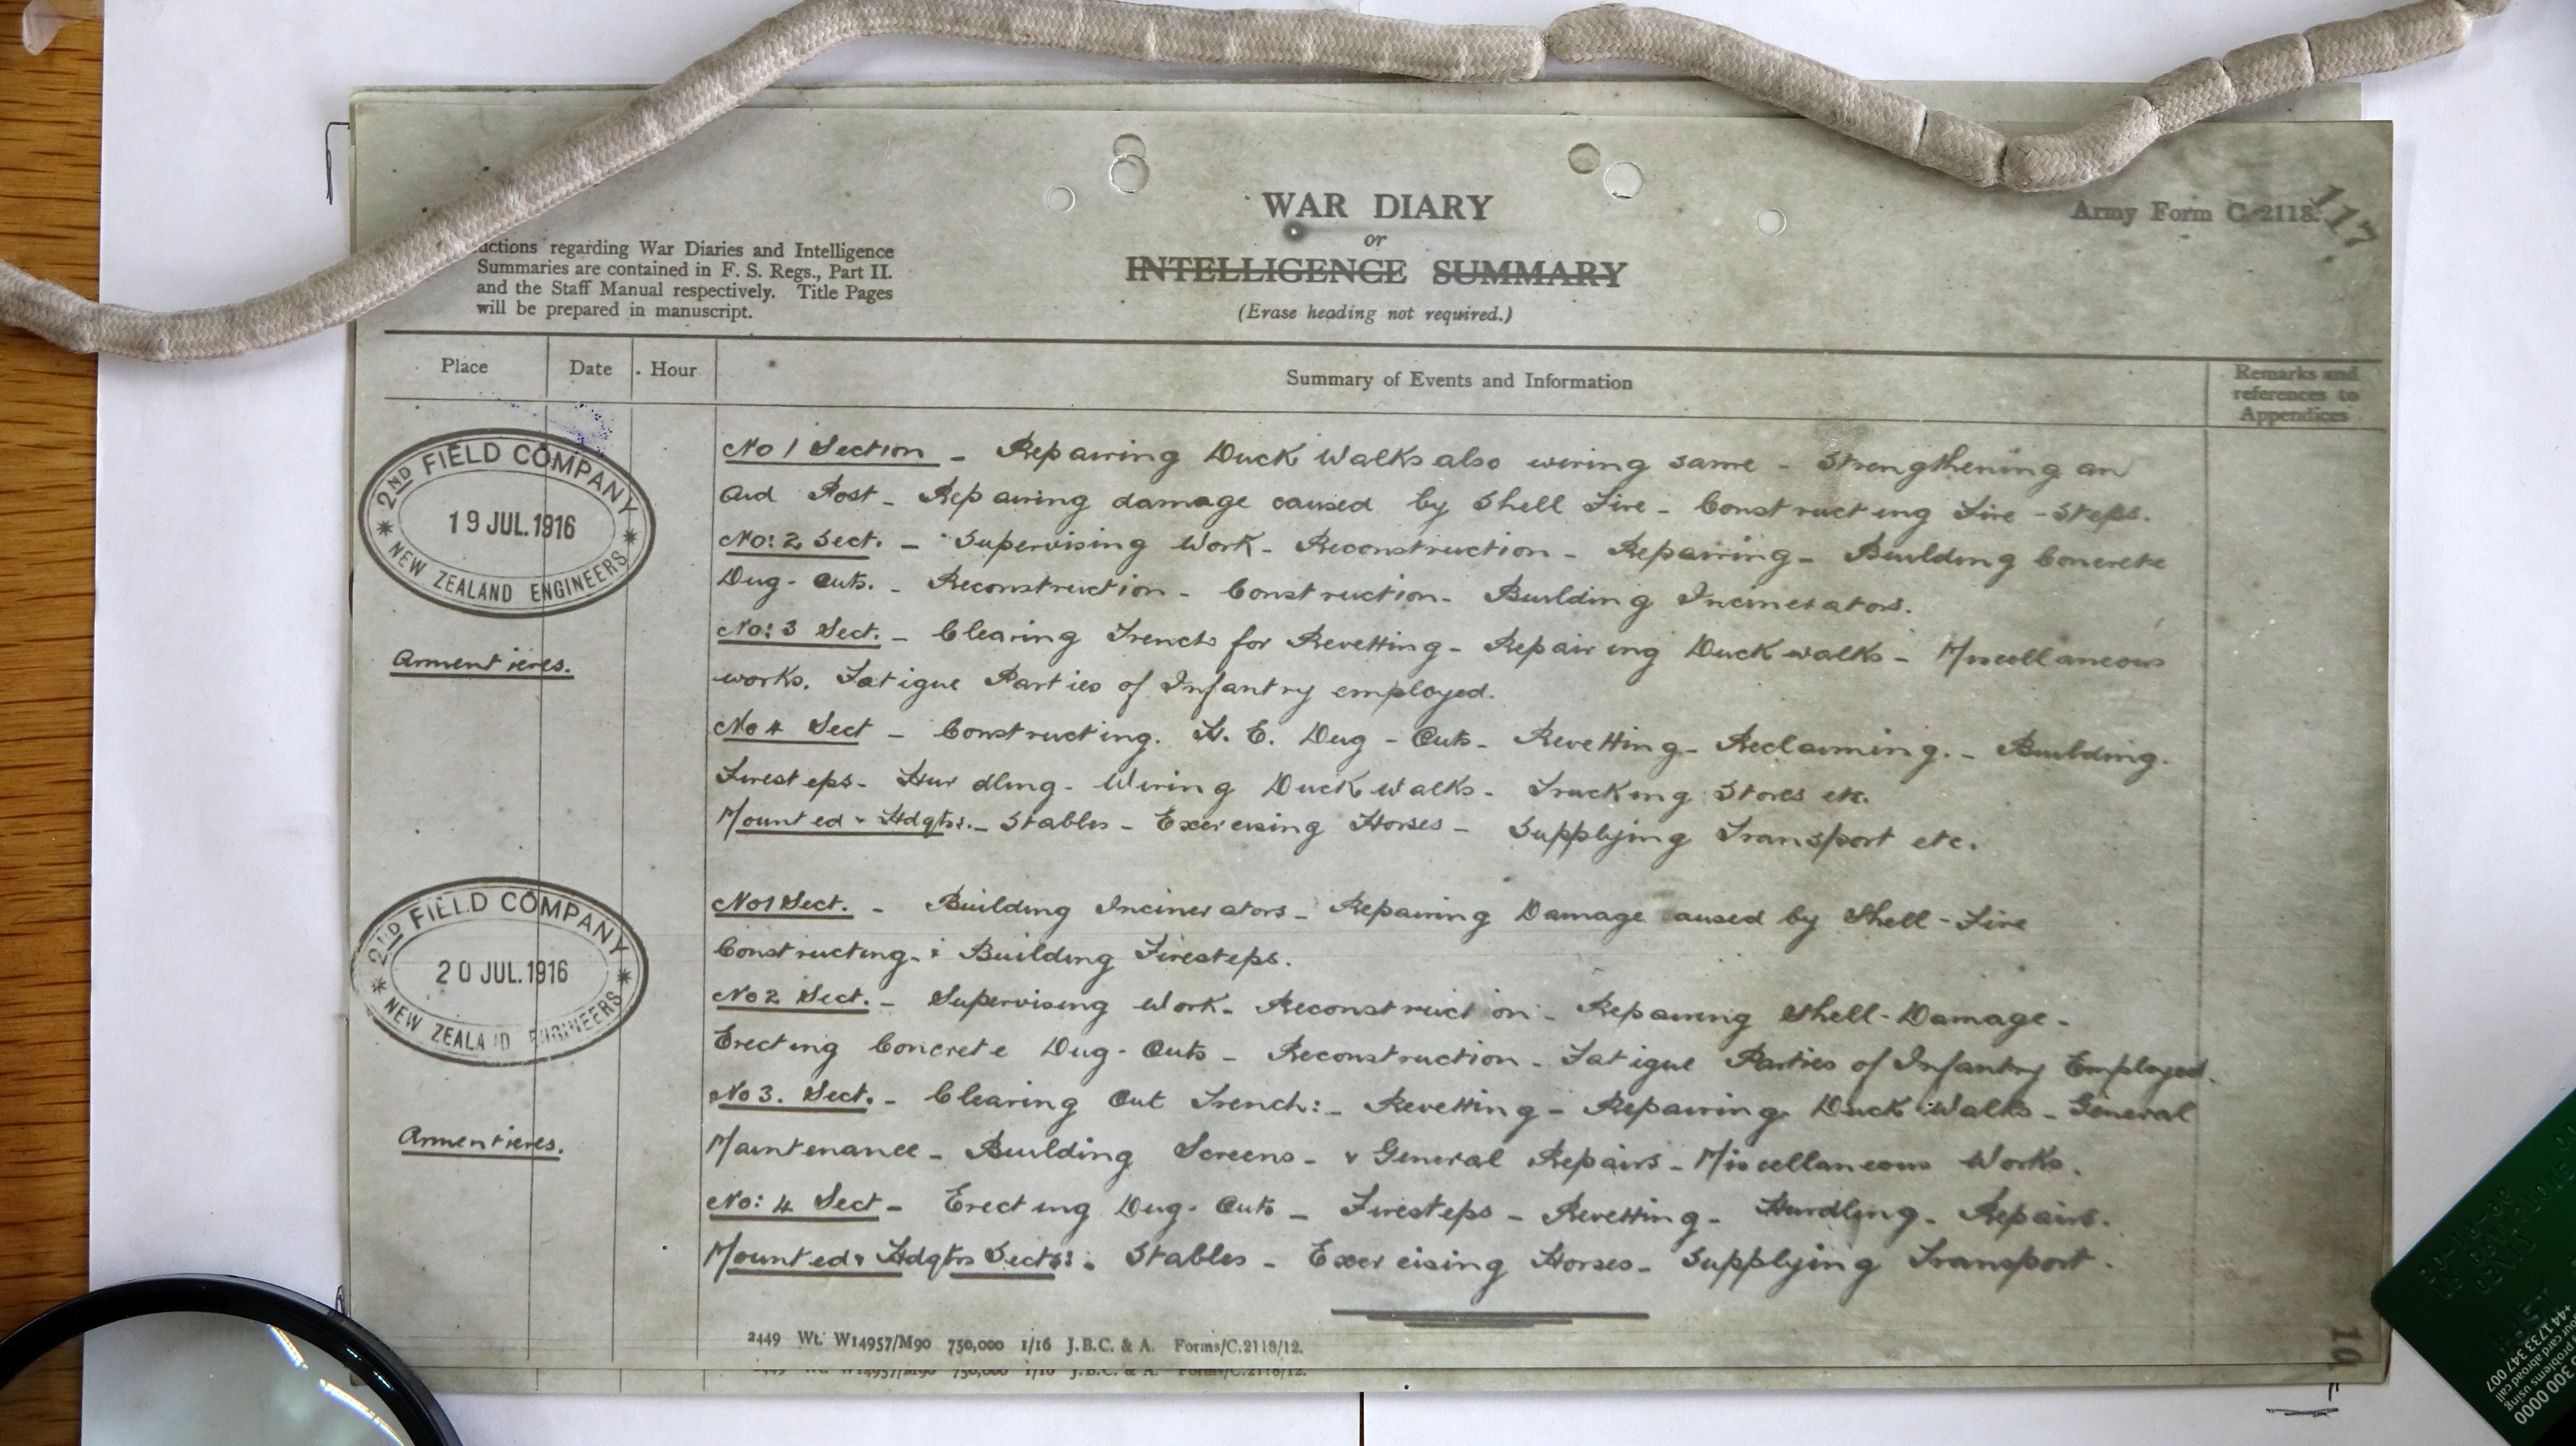 WAR DIARY
or
INTELLIGENCE SUMMARY
(Erase heading not required.)
Army Form C. 2118.
117
uctions regarding War Diaries and Intelligence
Summaries are contained in F. S. Regs., Part II.
and the Staff Manual respectively. Title Pages
will be prepared in manuscript.
Place
Date
Hour
Summary of Events and Information
Remarks and
references to
Appendices
2ND FIELD COMPANY
19 JUL. 1916
NEW ZEALAND ENGINEERS
Armentieres.
No 1 Section - Repairing Duck Walks also wiring same - Strengthening an
Aid Post - Repairing damage caused by Shell Fire - Constructing Fire-Steps.
No: 2 Sect. - Supervising Work - Reconstruction - Repairing - Building Concrete
Dug-Outs. - Reconstruction - Construction - Building Incinerators.
No: 3 Sect. - Clearing Trench for Revetting - Repairing Duckwalks - Miscellaneous
works. Fatigue Parties of Infantry employed.
No 4 Sect - Constructing. E. Dug-Outs - Revetting - Reclaiming. - Building.
Firesteps - Hurdling - Wiring Duckwalks - Trucking Stores etc.
Mounted & Hdqtrs. - Stables - Exercising Horses - Supplying Transport etc.
2ND FIELD COMPANY
20 JUL. 1916
NEW ZEALAND ENGINEERS
Armentieres.
No 1 Sect. - Building Incinerators - Repairing Damage caused by Shell-Fire
Constructing - : Building Firesteps.
No 2 Sect. - Supervising Work - Reconstruction - Repairing Shell-Damage -
Erecting Concrete Dug-Outs - Reconstruction - Fatigue Parties of Infantry Employed.
No 3. Sect. - Clearing Out Trench: - Revetting - Repairing Duck Walks - General
Maintenance - Building Screens - & General Repairs - Miscellaneous Works.
No: 4 Sect - Erecting Dug-Outs - Firesteps - Revetting - Hurdling - Repairs.
Mounted & Hdqtrs Sects: . Stables - Exercising Horses - Supplying Transport.
2449 Wt. W14957/M90 750,000 1/16 J.B.C. & A. Forms/C.2118/12.
2449 Wt. W14957/M90 750,000 1/16 J.B.C. & A. Forms/C.2118/12.
10
+44 1733 347 007